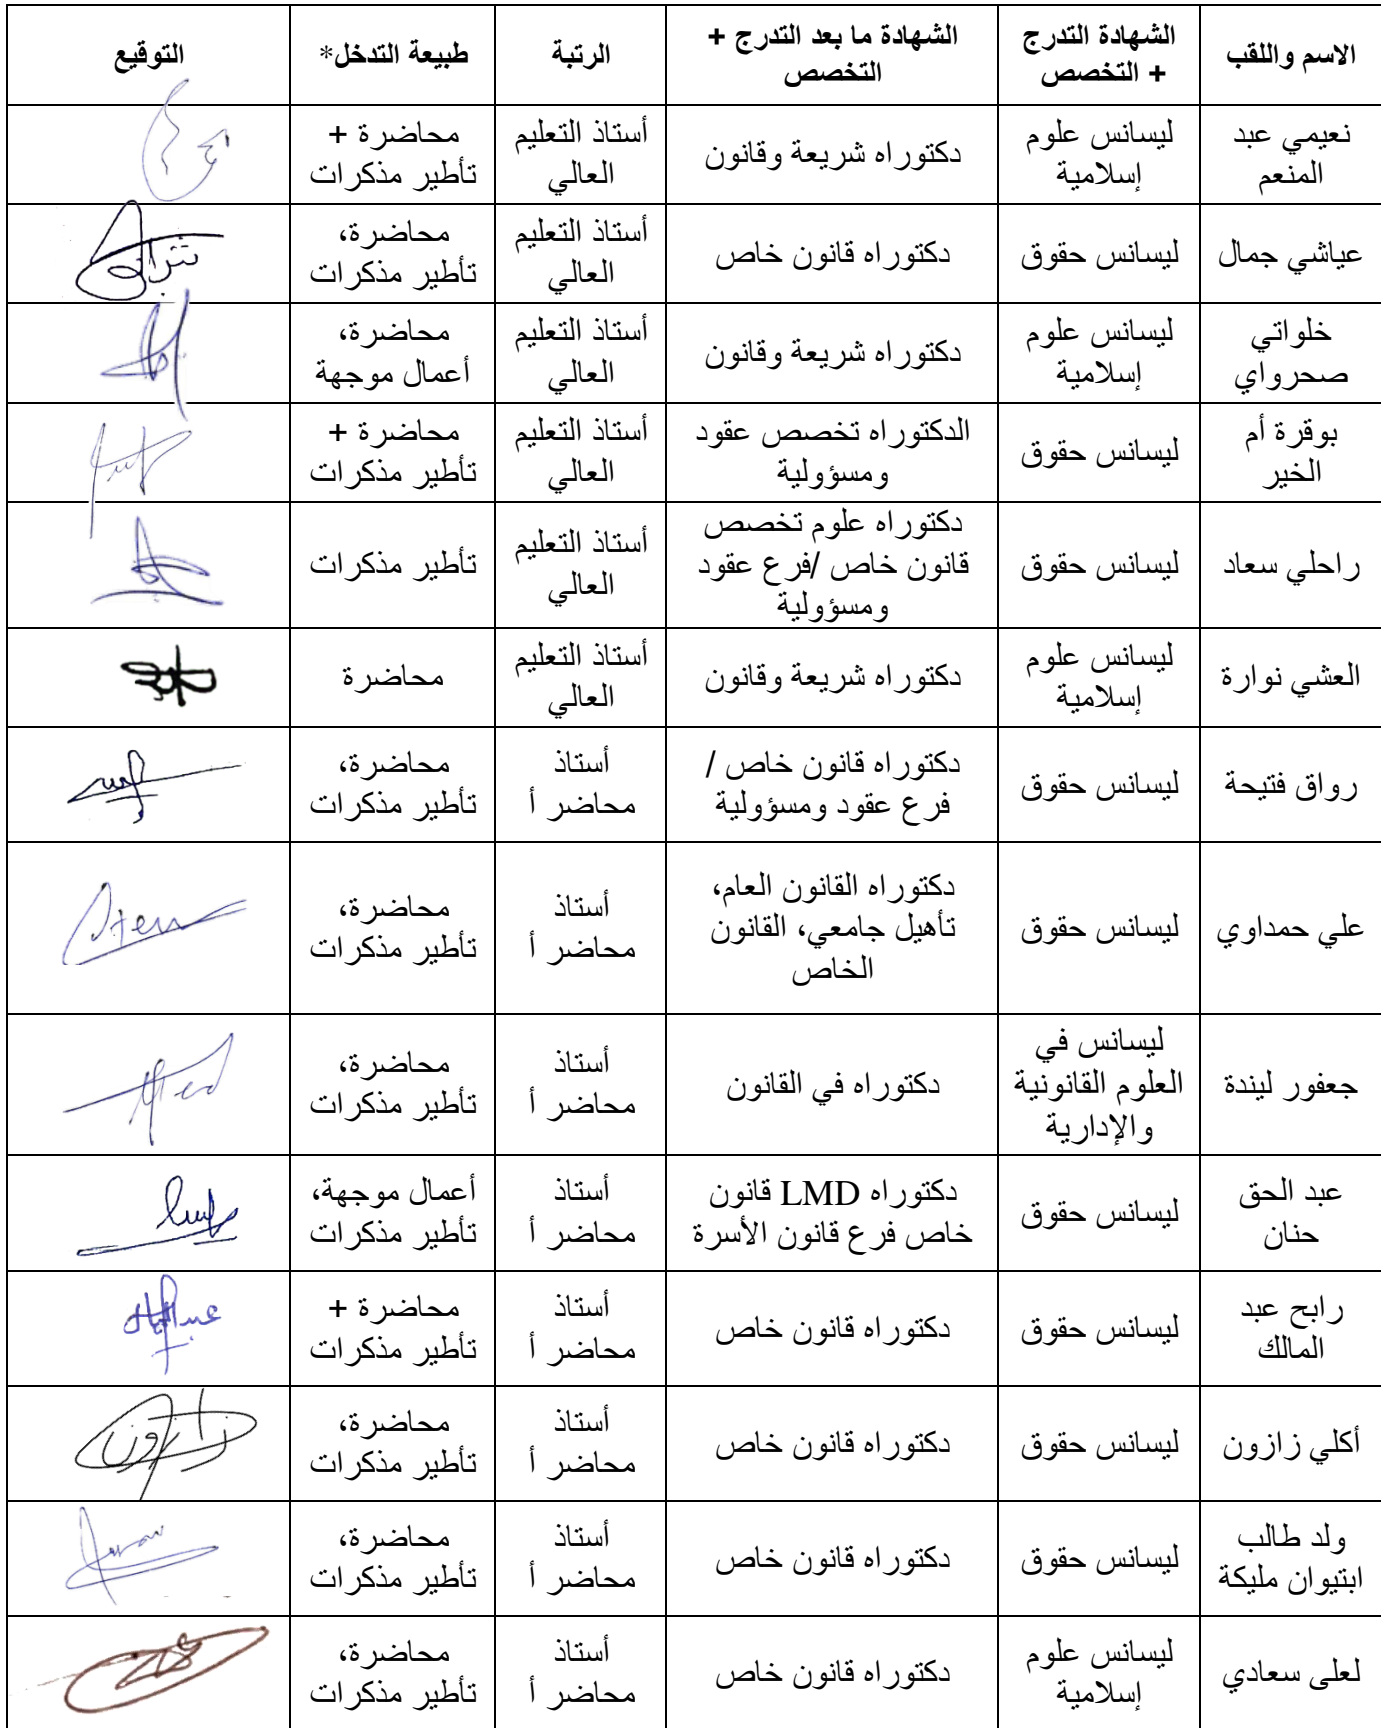 الاسم واللقب
الشهادة التدرج
+ التخصص
الشهادة ما بعد التدرج +
التخصص
الرتبة
طبيعة التدخل*
التوقيع
نعيمي عبد
المنعم
ليسانس علوم
إسلامية
دكتوراه شريعة وقانون
أستاذ التعليم
العالي
محاضرة +
تأطير مذكرات
عياشي جمال
ليسانس حقوق
دكتوراه قانون خاص
أستاذ التعليم
العالي
محاضرة،
تأطير مذكرات
خلواتي
صحرواي
ليسانس علوم
إسلامية
دكتوراه شريعة وقانون
أستاذ التعليم
العالي
محاضرة،
أعمال موجهة
بوقرة أم
الخير
ليسانس حقوق
الدكتوراه تخصص عقود
ومسؤولية
أستاذ التعليم
العالي
محاضرة +
تأطير مذكرات
راحلي سعاد
ليسانس حقوق
دكتوراه علوم تخصص
قانون خاص /فرع عقود
ومسؤولية
أستاذ التعليم
العالي
تأطير مذكرات
العشي نوارة
ليسانس علوم
إسلامية
دكتوراه شريعة وقانون
أستاذ التعليم
العالي
محاضرة
رواق فتيحة
ليسانس حقوق
دكتوراه قانون خاص /
فرع عقود ومسؤولية
أستاذ
محاضر أ
محاضرة،
تأطير مذكرات
علي حمداوي
ليسانس حقوق
دكتوراه القانون العام،
تأهيل جامعي، القانون
الخاص
أستاذ
محاضر أ
محاضرة،
تأطير مذكرات
جعفور ليندة
ليسانس في
العلوم القانونية
والإدارية
دكتوراه في القانون
أستاذ
محاضر أ
محاضرة،
تأطير مذكرات
عبد الحق
حنان
ليسانس حقوق
دكتوراه LMD قانون
خاص فرع قانون الأسرة
أستاذ
محاضر أ
أعمال موجهة،
تأطير مذكرات
رابح عبد
المالك
ليسانس حقوق
دكتوراه قانون خاص
أستاذ
محاضر أ
محاضرة +
تأطير مذكرات
أكلي زازون
ليسانس حقوق
دكتوراه قانون خاص
أستاذ
محاضر أ
محاضرة،
تأطير مذكرات
ولد طالب
ابتيوان مليكة
ليسانس حقوق
دكتوراه قانون خاص
أستاذ
محاضر أ
محاضرة،
تأطير مذكرات
لعلى سعادي
ليسانس علوم
إسلامية
دكتوراه قانون خاص
أستاذ
محاضر أ
محاضرة،
تأطير مذكرات